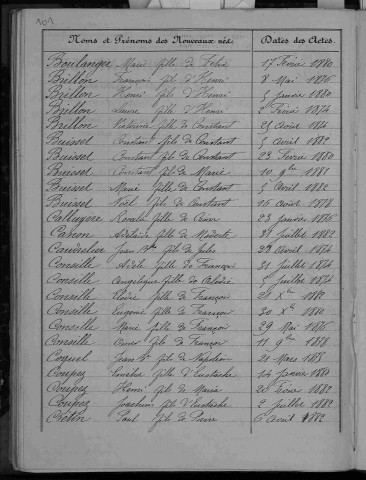 101
Noms et Prénoms des Nouveaux nés. Dates des Actes.
Boulanger Marie fille de Félix 17 Février 1880
Brillon François fils d'Henri 8 Mai 1876
Brillon Henri fils d'Henri 5 janvier 1880
Brillon Laure fille d'Henri 2 Février 1874
Brillon Victorine fille de Constant 25 Août 1874
Buissel Constant fils de Constant 5 Avril 1882
Buissel Constant fils de Constant 23 Février 1880
Buissel Constant fils de Marie 10 9bre 1881
Buissel Marie fille de Constant 5 Avril 1882
Buissel Noël fils de Constant 16 Août 1878
Rosalie fille de 23 janvier 1876
Caron Adélaïde fille de Modeste 31 juillet 1882
Caudrelier Jean Bte fils de Jules 29 Avril 1874
Conseille Adèle fille de François 31 juillet 1874
Conseille Angélique fille de 5 juillet 1874
Conseille Claire fille de François 21 Xbre 1880
Conseille Eugénie fille de François 30 Xbre 1880
Conseille Marie fille de François 29 Mai 1876
Conseille fils de François 11 9bre 1878
Coquel Jean Bte fils de Napoléon 21 Mars 1878
Coupez fille d'Eustache 14 janvier 1880
Coupez Henri fils de Marie 20 Février 1882
Coupez Joachim fils d'Eustache 2 juillet 1882
Crétin Paul fils de Pierre 6 Avril 1882